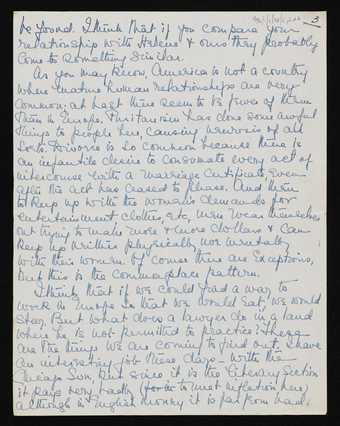 3
be found. I think that if you compare your
relationship with Helene & ours they probably
come to something similar.
As you may know, America is not a country
where mature human relationships are very
common. At least there seem to be fewer of them
than in Europe. Puritanism has done some awful
things to people here, causing neurosis of all
sorts. Divorce is so common because there is
an infantile desire to consomate every act of
intercourse with a marriage certificate, even
after the act has ceased to please. And then
to keep up with the woman's demands for
entertainment clothes, etc, men wear themselves
out trying to make more & more dollars & can
keep up neither physically nor mentally
with their women. Of course there are exceptions,
but this is the commonplace pattern.
I think that if we could find a way to
work in Europe so that we would eat, we would
stay. But what does a lawyer do in a land
where he is not permitted to practice? These
are the things we are coming to find out. I have
an interesting job these days - with the
Chicago Sun, but since it is the Literary Section
it pays very badly (to meet inflation here)
although in English money it is far from bad.